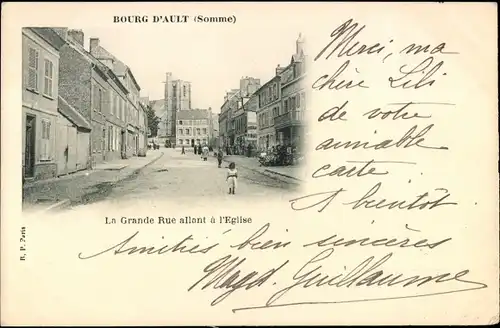 BOURG D'AULT (Somme)
Merci, ma
chère Lili
de votre
aimable
carte.
A bientôt
La Grande Rue allant à l'Eglise
Amitiés bien sincères
Magd. Guillaume
B. P. Paris